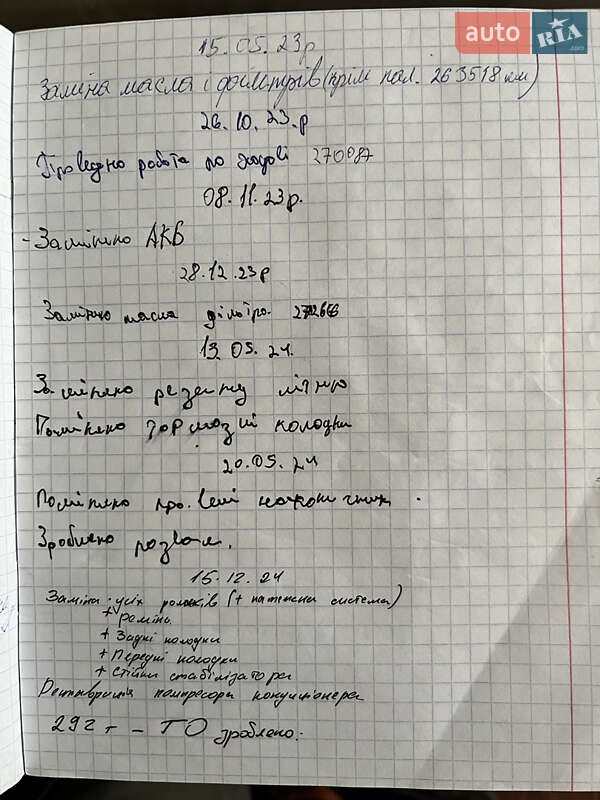 auto RIA .com
15.05.23р
Заміна масла і фільтрів (крім пал. 263518 км)
26.10.23.р
Проведено робота по ходові 270087
08.11.23р.
- Замінено АКБ
28.12.23р
Замінено масла фільтро.
13.05.24.
Замінено резину літню
Поміняно тормозні колодки
20.05.24
Поміняно наконечник.
Зроблено розвал.
15.12.24
Заміна: усіх роликів (+ натяжна система)
+ реміни.
+ Задні колодки
+ Передні колодки
+ Стійки стабілізатора
Реставрація компресора кондиціонера
292 т - ТО зроблено.